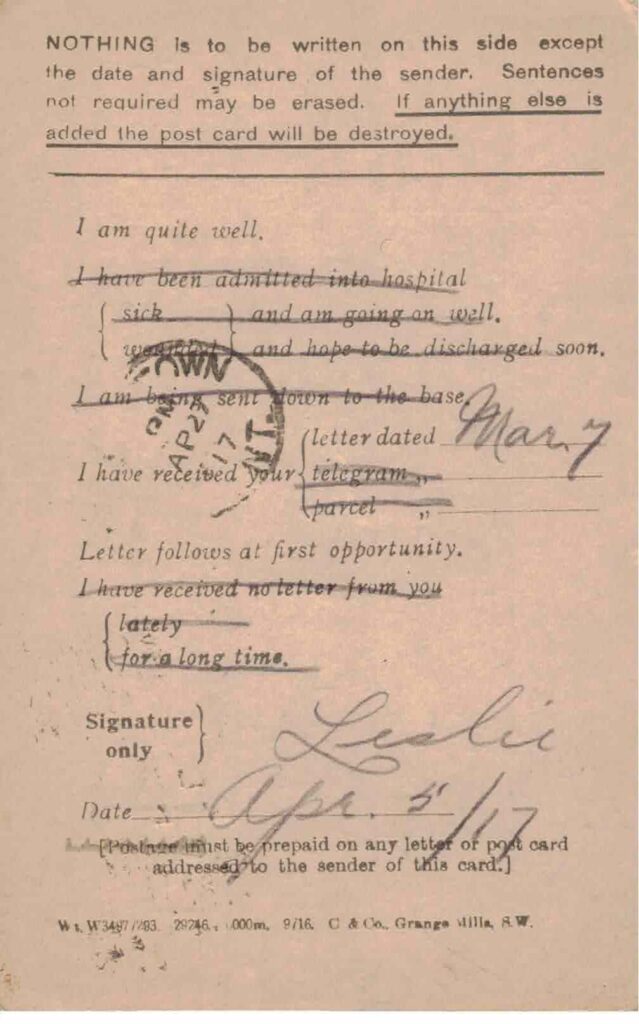 NOTHING is to be written on this side except
the date and signature of the sender. Sentences
not required may be erased. If anything else is
added the post card will be destroyed.
I am quite well.
I have been admitted into hospital
sick and am going on well.
wounded and hope to be discharged soon.
I am being sent down to the base.
OWN
PM
AP 27
17
NT.
letter dated Mar. 7
I have received your telegram „
parcel „
Letter follows at first opportunity.
I have received no letter from you
lately
for a long time.
Signature
only
Leslie
Date Apr. 5/17
[Postage must be prepaid on any letter or post card
addressed to the sender of this card.]
29246. 000m. 9/16. C & Co., Grange Mills, S.W.